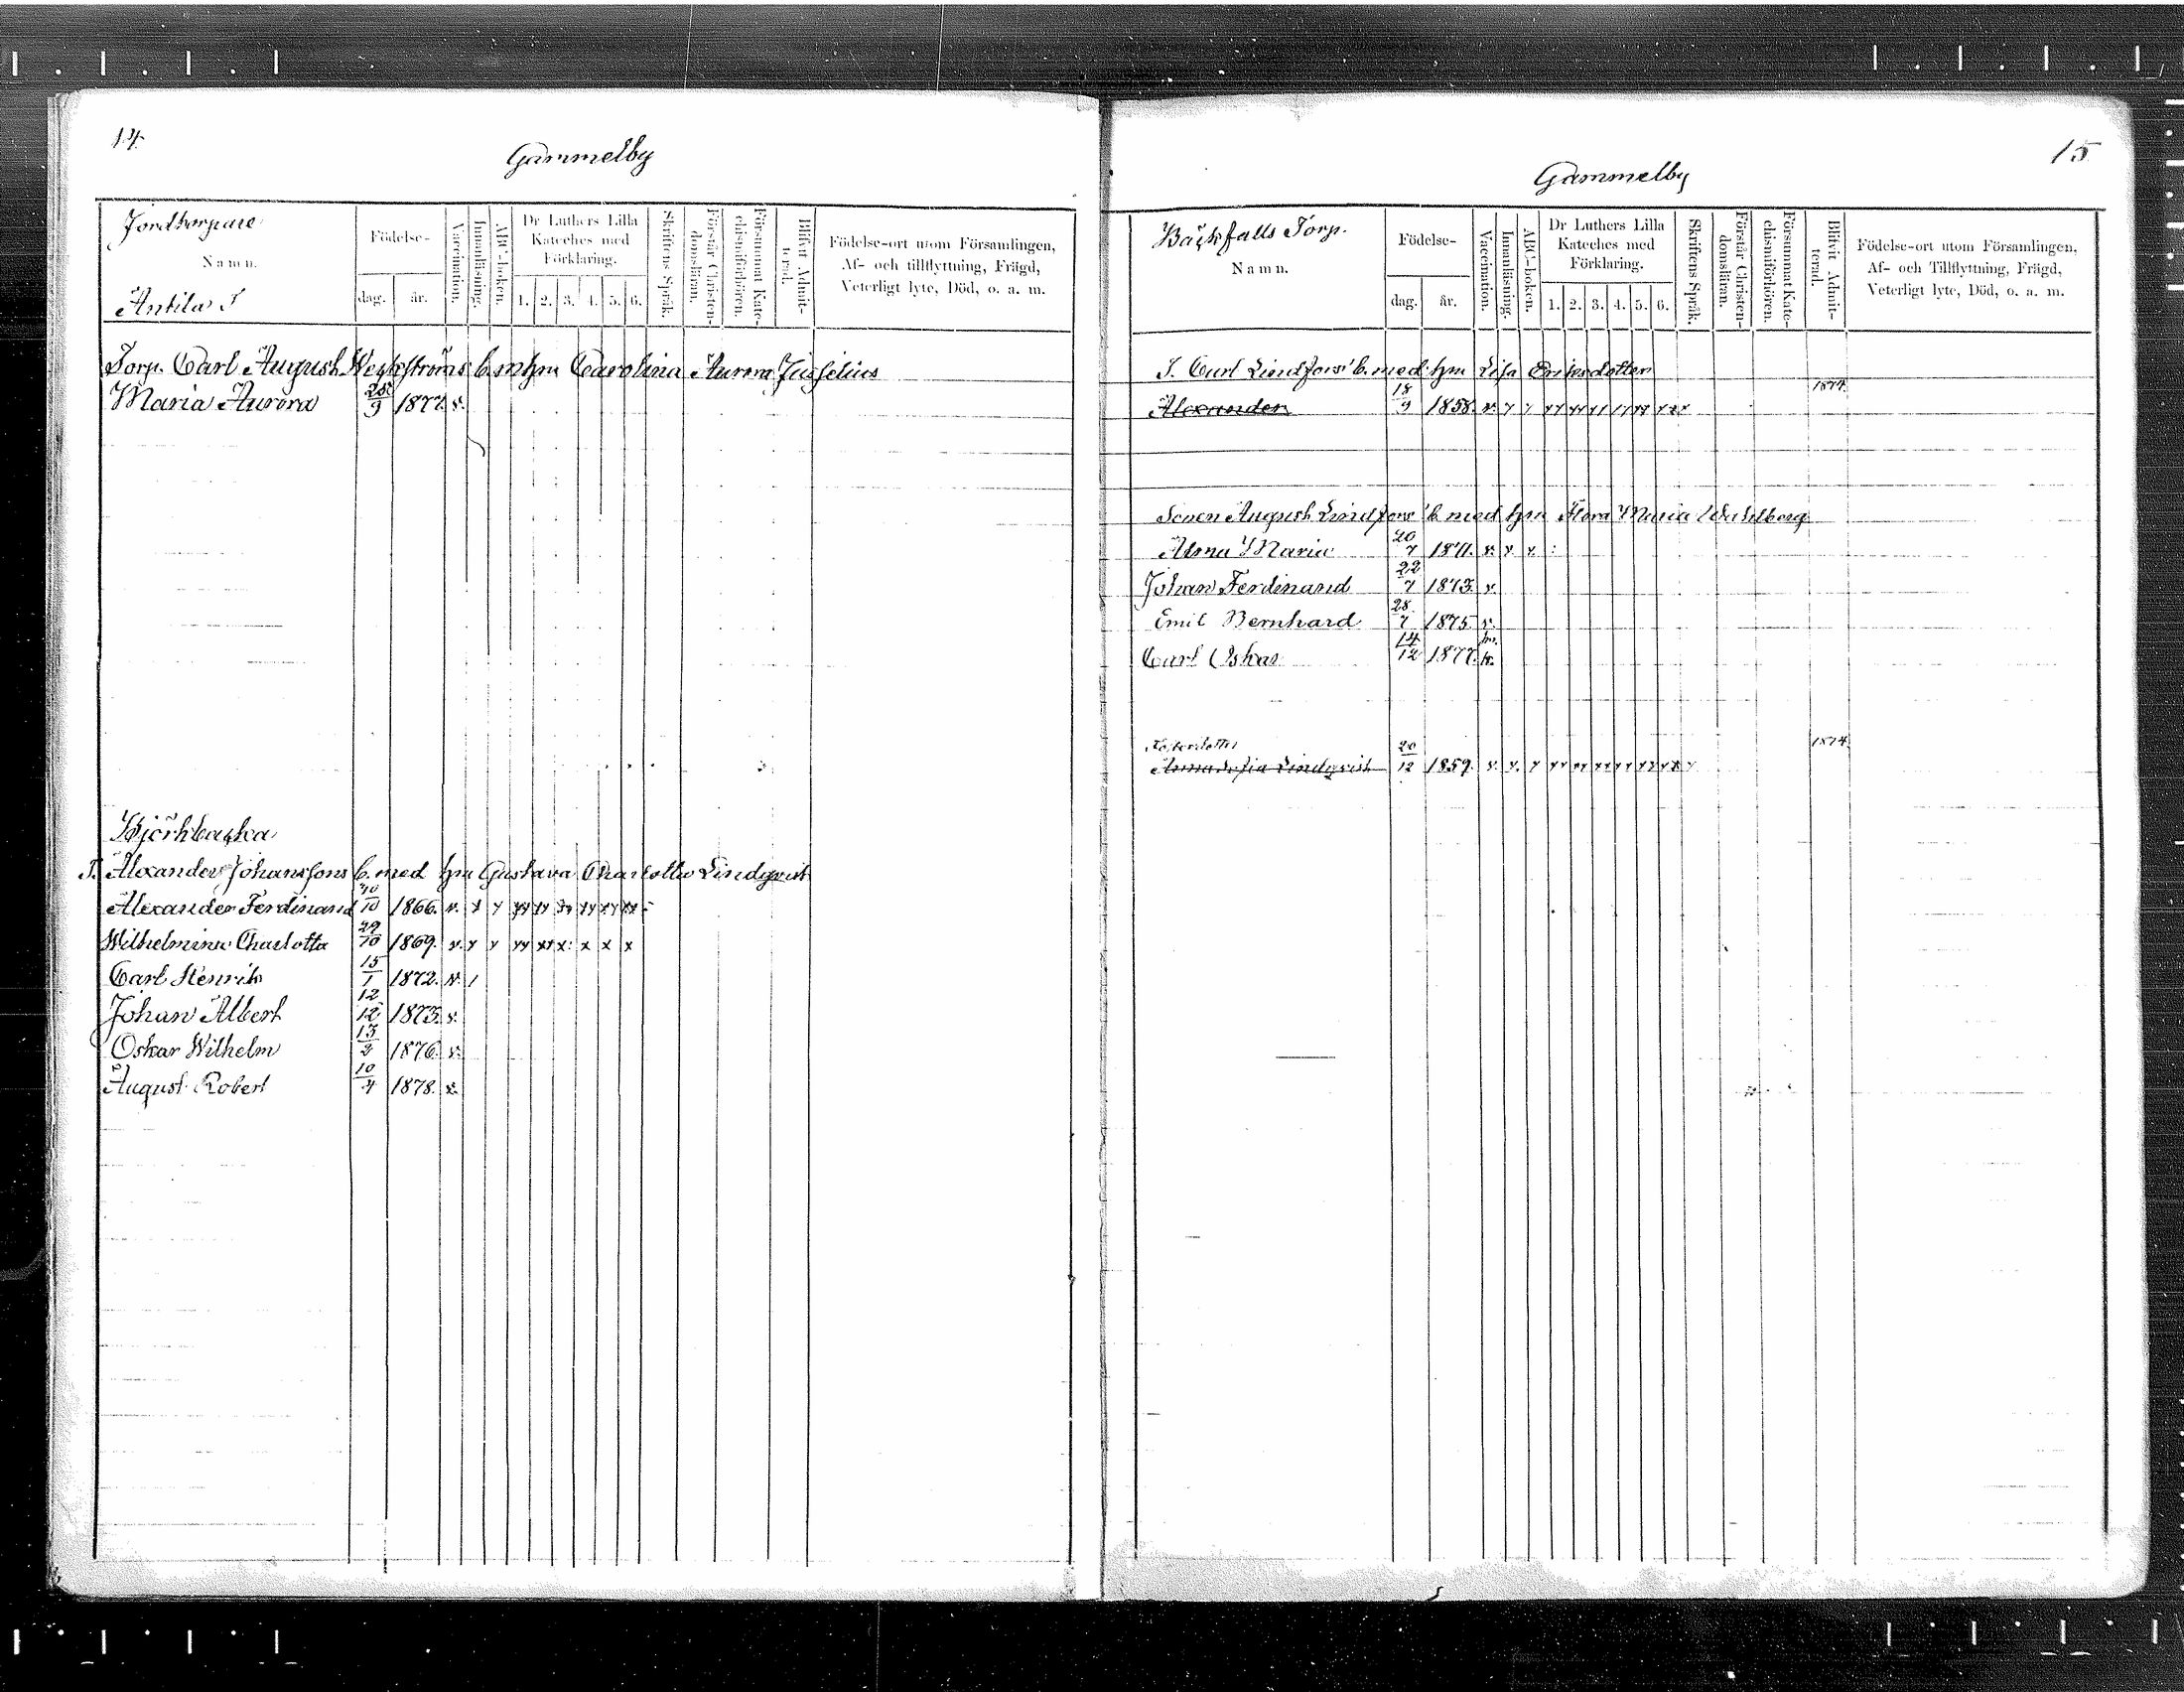 14.
Gammelby
Jordtorpare
Namn.
Antila T
Födelse-
dag.
år.
Vaccination.
Innanläsning.
ABC-boken.
Dr Luthers Lilla
Kateches med
Förklaring.
1. 2. 3. 4. 5. 6.
Skriftens Språk.
Förstår Christen-
domsläran.
Försummat Kate-
chismiförhören.
Blifvit Admit-
terad.
Födelse-ort utom Församlingen,
Af- och tillflyttning, Frägd,
Veterligt lyte, Död, o. a. m.
Torp. Carl August Weckströms b. m hm Carolina Aurora
Maria Aurora 28/9 1877. v.
Björkbacka
T. Alexander Johanssons b. med hm Gustava Charlotta Lindqvist
Alexander Ferdinand /10 1866. v. x
Wilhelmina Charlotta 29/10 1869. v. x x xx xx x x x x
Carl Henrik 15/1 1872. v. /
Johan Albert 12/12 1873. v.
Oskar Wilhelm 13/2 1876. v.
August Robert 10/4 1878. v.
15
Gammelby
Bäckfalls Torp.
Namn.
Födelse-
dag.
år.
Vaccination.
Innanläsning.
ABC-boken.
Dr Luthers Lilla
Kateches med
Förklaring.
1. 2. 3. 4. 5. 6.
Skriftens Språk.
Förstår Christen-
domsläran.
Försummat Kate-
chismiförhören.
Blifvit Admit-
terad.
Födelse-ort utom Församlingen,
Af- och Tillflyttning, Frägd,
Veterligt lyte, Död, o. a. m.
T. Carl Lindfors' b. med hm Lisa Eriksdotter
Alexander 18/9 1858. v. 1874.
Sonen August Lindfors' b med hm Flora Maria Wahlberg
Alma Maria 20/7 1871. v. x x
Johan Ferdinand 22/7 1873. v.
Emil Bernhard 28/7 1875. v.
Carl Oskar 14/12 1877.
Anna Sofia Lindqvist 20/12 1859. v. x. x 1874.